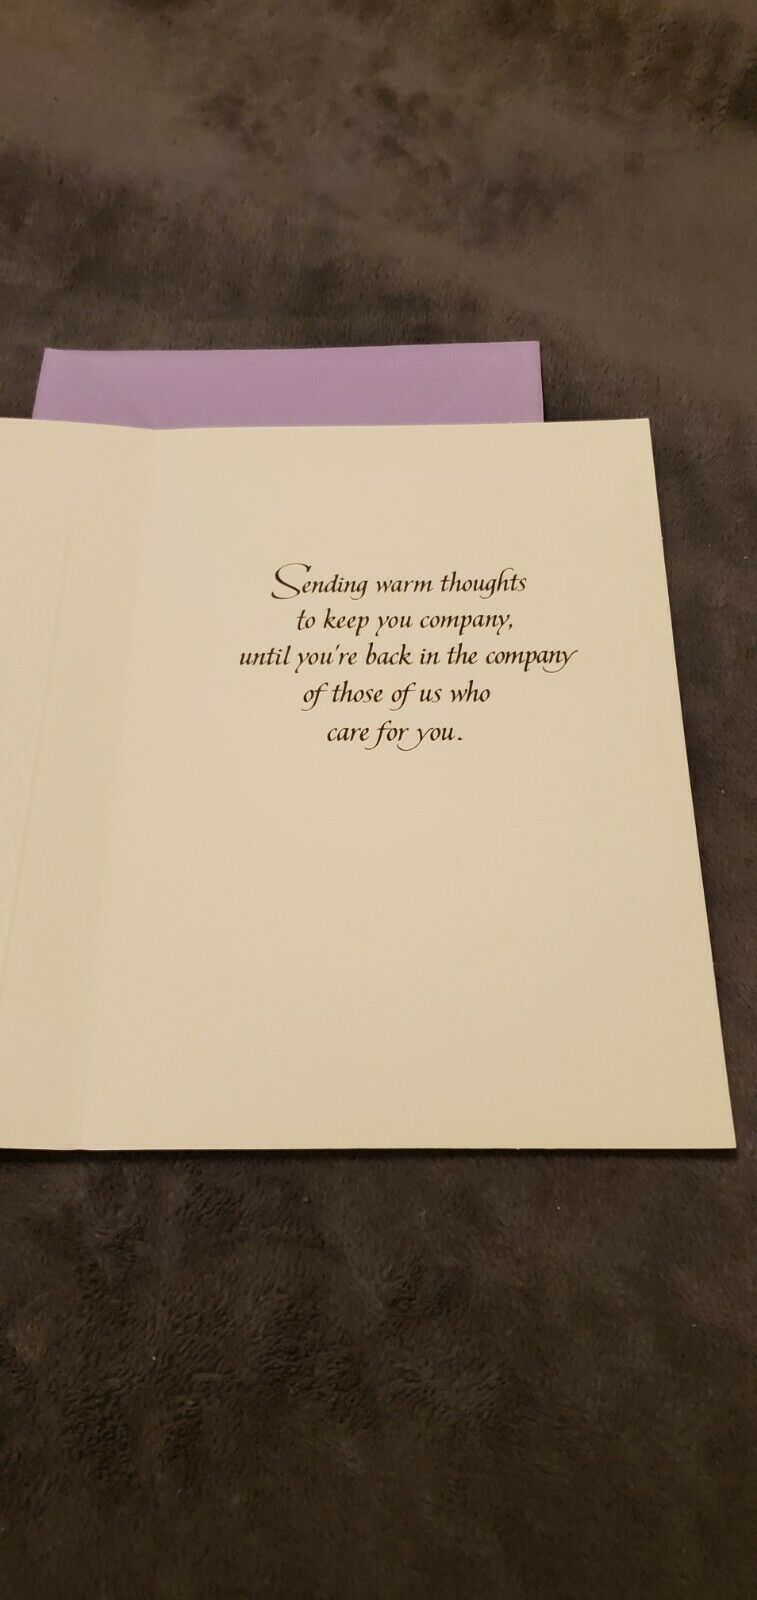 Sending warm thoughts
to keep you company,
until you're back in the company
of those of us who
care for you.